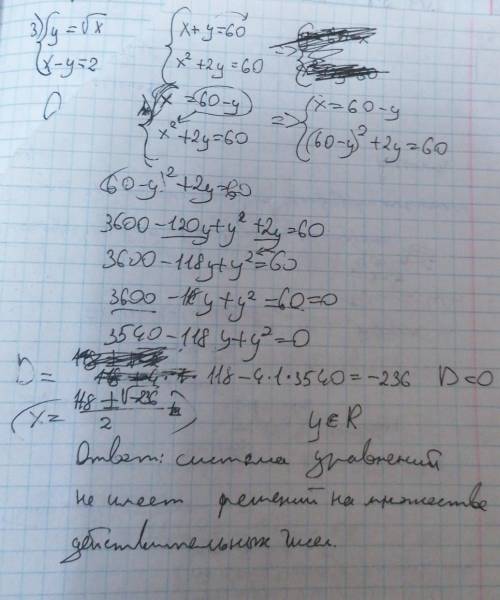 3) { y = √x   { x + y = 60
{ x - y = 2   { x² + 2y = 60 =>
{ x = 60 - y   => { x = 60 - y
{ x² + 2y = 60   { (60 - y)² + 2y = 60
(60 - y)² + 2y = 60
3600 - 120y + y² + 2y = 60
3600 - 118y + y² = 60
3600 - 118y + y² = 60 = 0
3540 - 118y + y² = 0
D = 118 - 4·1·3540 = -236   D < 0
(x = (118 ± √-236) / 2)   y ∈ R
Ответ: система уравнений
не имеет решений на множестве
действительных чисел.